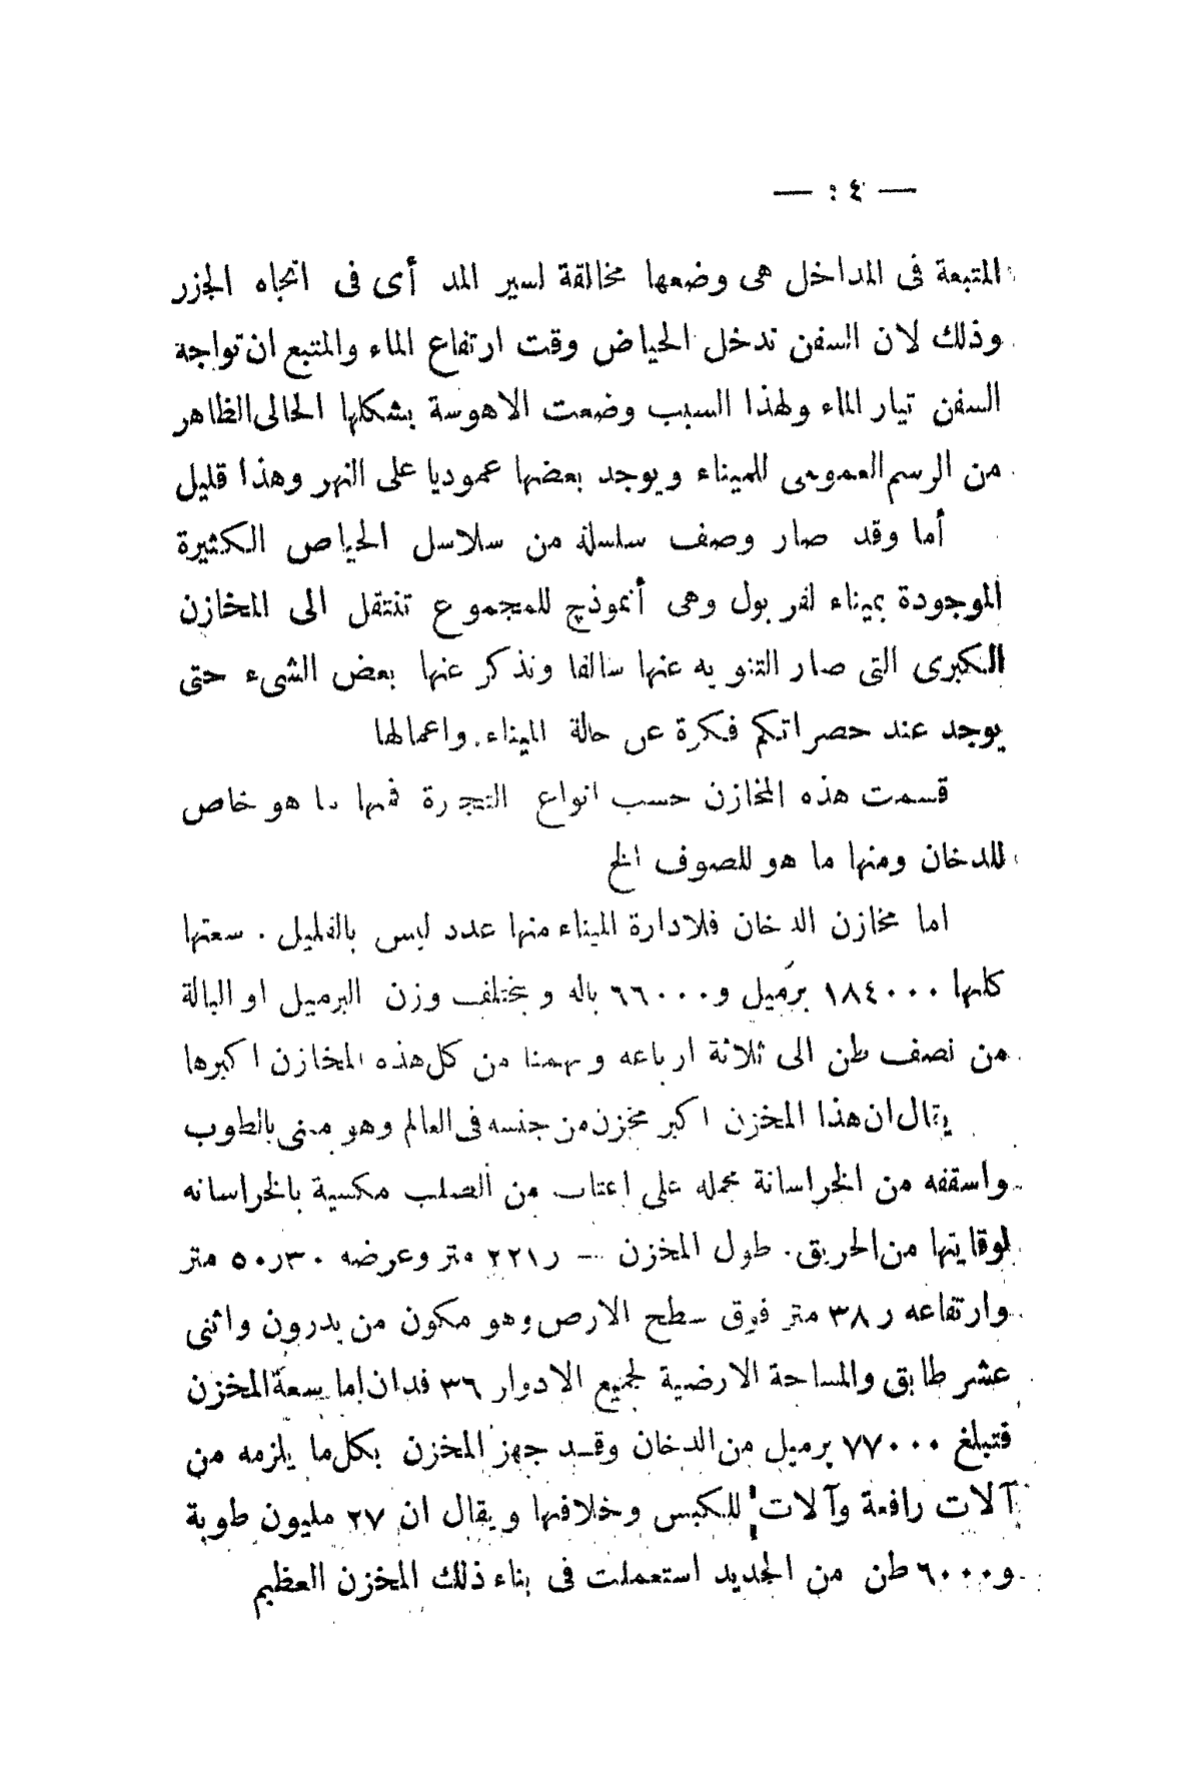 — ٤ : —
المتبعة فى المداخل هى وضعها مخالفة لسير المد أى فى اتجاه الجزر
وذلك لان السفن تدخل الحياض وقت ارتفاع الماء والمتبع ان تواجة
السفن تيار الماء ولهذا السبب وضعت الاهوسة بشكلها الحالى الظاهر
من الرسم العمومى للميناء ويوجد بعضها عموديا على النهر وهذا قليل
أما وقد صار وصف سلسلة من سلاسل الحياض الكثيرة
الموجودة بميناء لفر بول وهى أنموذج للمجموع تنتقل الى المخازن
الكبرى التى صار التنويه عنها سالفا ونذكر عنها بعض الشىء حتى
يوجد عند حضراتكم فكرة عن حالة الميناء. واعمالها
قسمت هذه المخازن حسب انواع التجرة فمنها ما هو خاص
للدخان ومنها ما هو للصوف الخ
اما مخازن الدخان فلادارة الميناء منها عدد ليس بالقليل . سعتها
كلها ١٨٤٠٠٠ برميل و٦٦٠٠٠ باله ويختلف وزن البرميل او البالة
من نصف طن الى ثلاثة ارباعه ويهمنا من كل هذه المخازن اكبرها
يقال ان هذا المخزن اكبر مخزن من جنسه فى العالم وهو مبنى بالطوب
واسقفه من الخراسانة محمله على اعتاب من الصلب مكسية بالخراسانه
لوقايتها من الحريق. طول المخزن — ر٢٢١ متر وعرضه ٥٠ر٣٠ متر
وارتفاعه ر٣٨ متر فوق سطح الارض وهو مكون من بدرون واثنى
عشر طابق والمساحة الارضية لجميع الادوار ٣٦ فدان اما سعة المخزن
فتبلغ ٧٧٠٠٠ برميل من الدخان وقد جهز المخزن بكل ما يلزمه من
آلات رافعة وآلات للكبس وخلافها ويقال ان ٢٧ مليون طوبة
و٦٠٠٠ طن من الجديد استعملت فى بناء ذلك المخزن العظيم